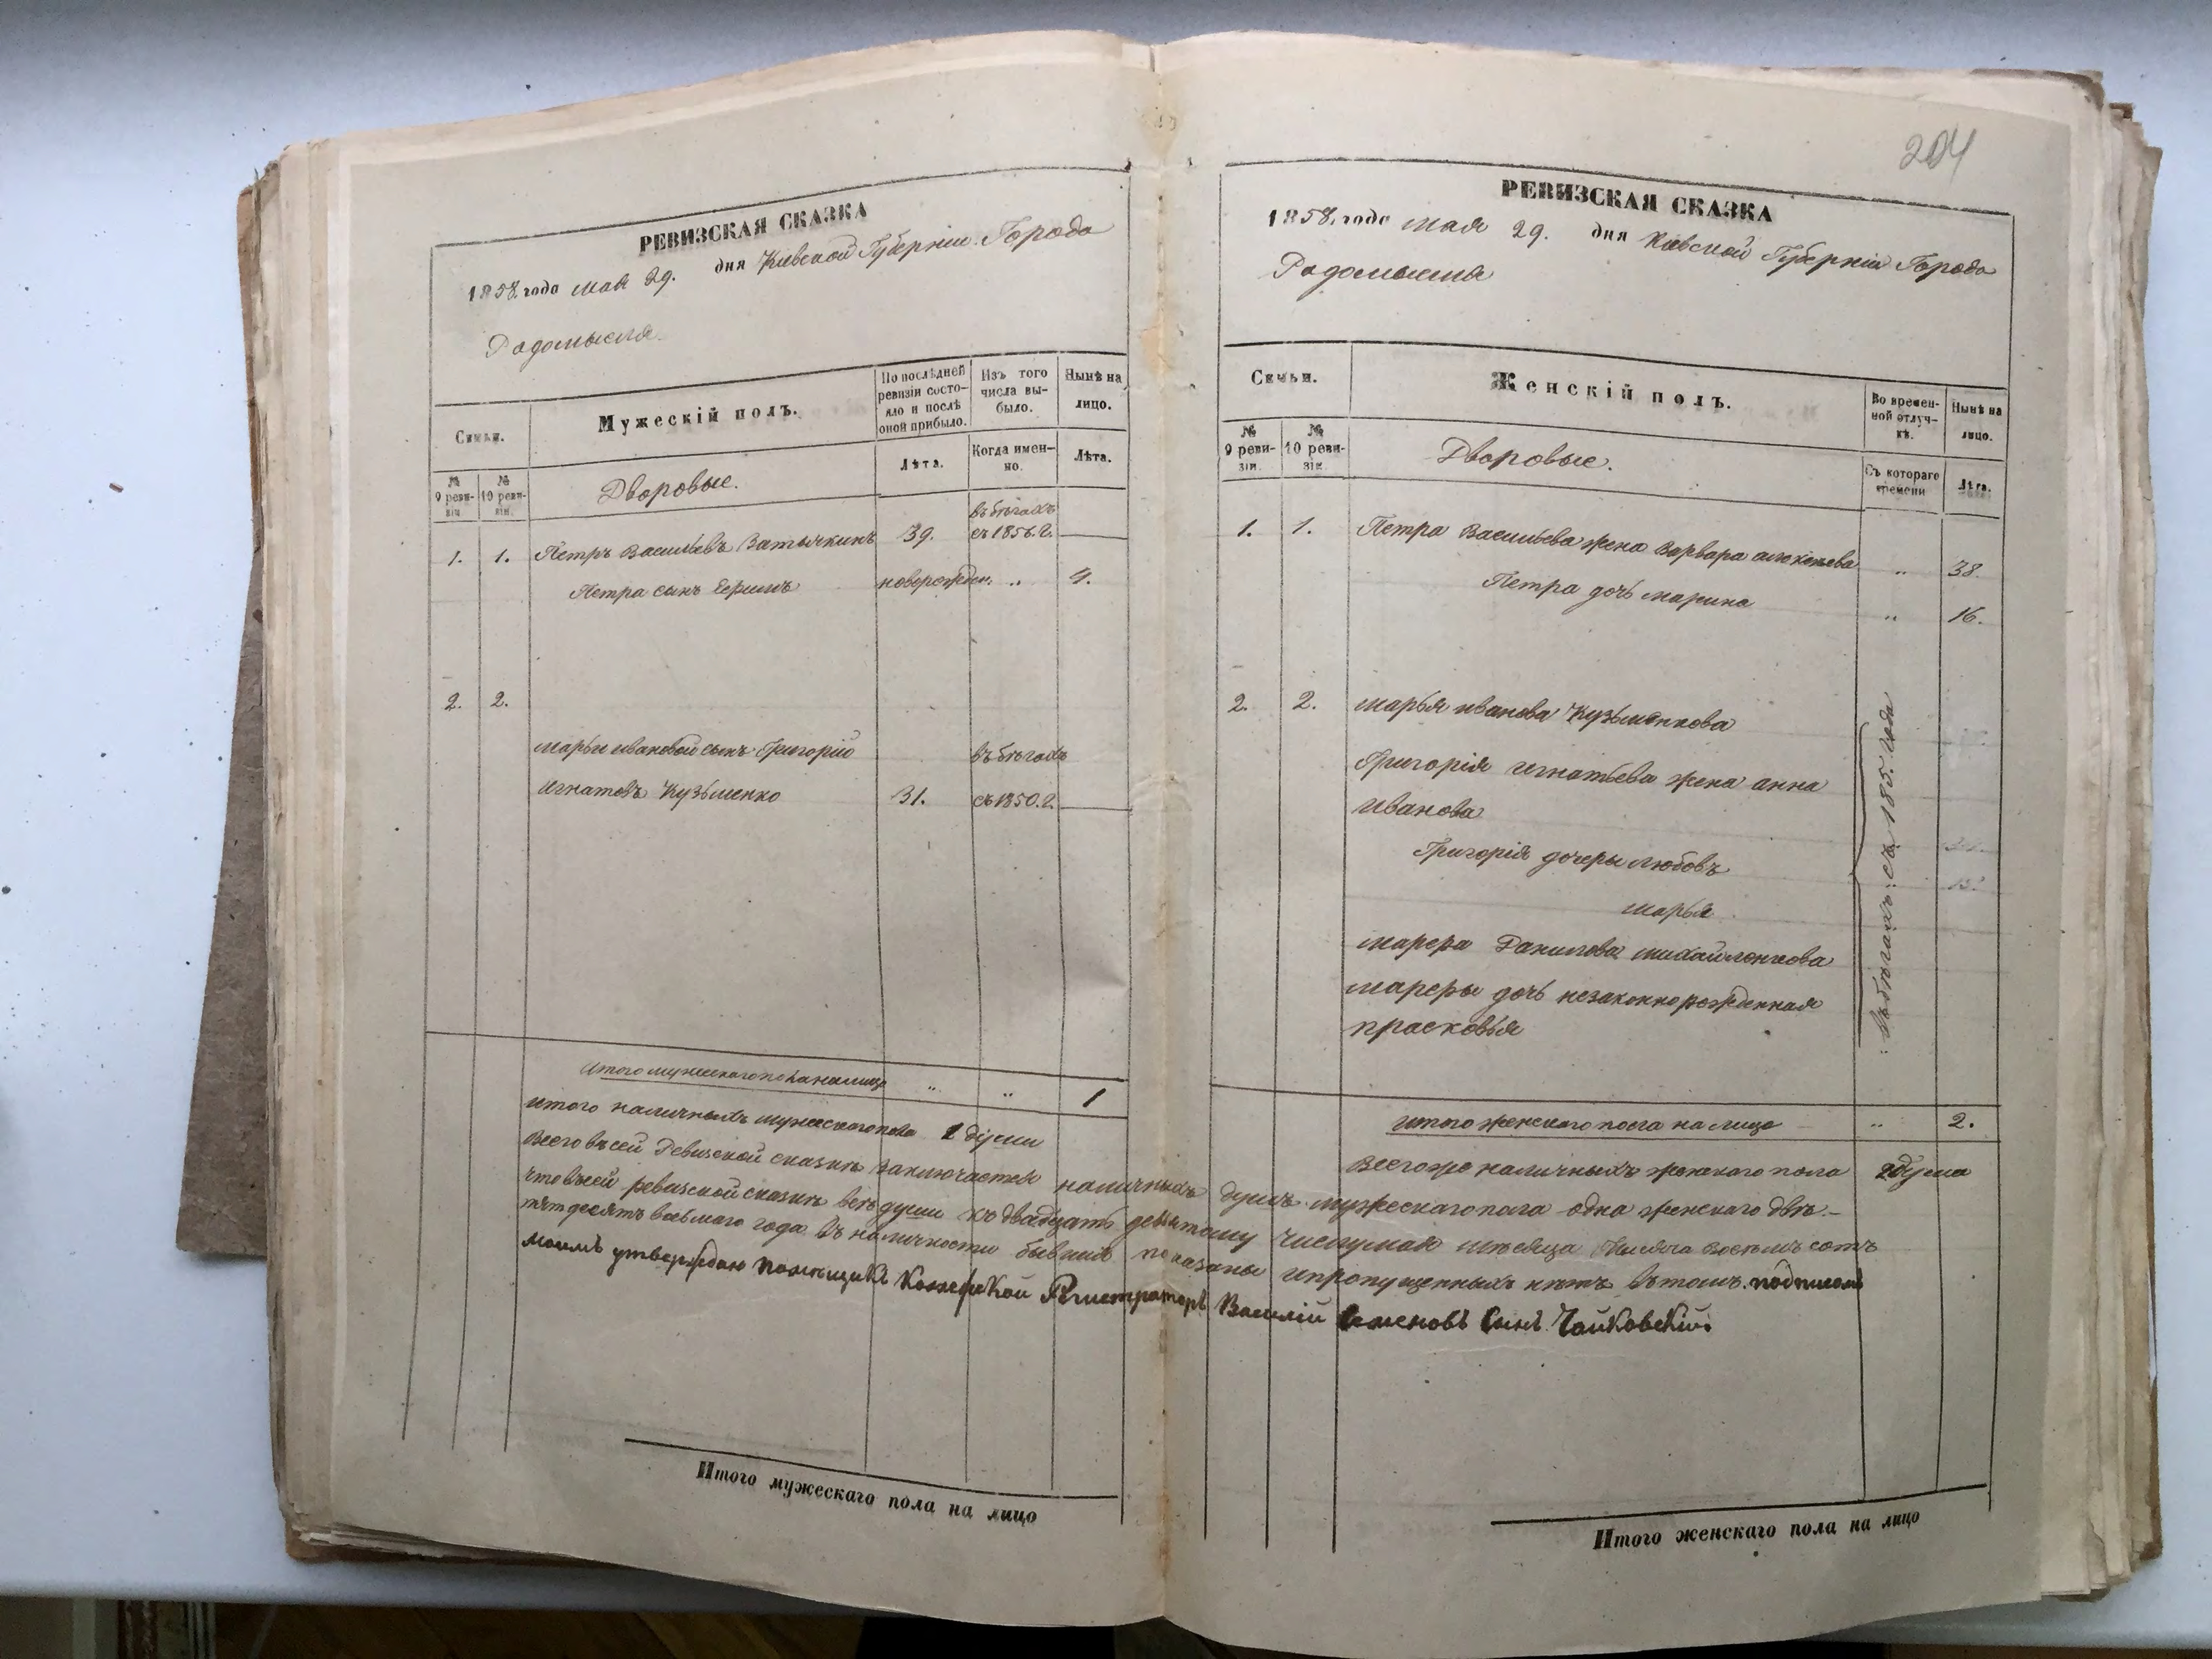 РЕВИЗСКАЯ СКАЗКА
1858 года мая 29. дня Киевской Губерніи Города
Радомысля.
Семьи.
Мужескій полъ.
По послѣдней ревизіи состояло и послѣ оной прибыло.
Изъ того числа выбыло.
Нынѣ на лицо.
№ 9 ревизіи.
№ 10 ревизіи.
Дворовые.
Лѣта.
Когда именно.
Лѣта.
1. 1. Петръ Васильевъ Затычкинъ 39. въ бѣгахъ съ 1856. г.
Петра сынъ Ефимъ новорожден. „ 4.
2. 2.
Марьи Ивановой сынъ Григорій въ бѣгахъ
Игнатовъ Кузьменко 31. съ 1850. г.
Итого мужескаго пола на лицо „ „ 1
Итого наличныхъ мужескаго пола 1 души
204
РЕВИЗСКАЯ СКАЗКА
1858. года мая 29. дня Киевской Губерніи Города
Радомысля
Семьи.
Женскій полъ.
Во временной отлучкѣ.
Нынѣ на лицо.
№ 9 ревизіи.
№ 10 ревизіи.
Дворовые.
Съ котораго времени
Лѣта.
1. 1. Петра Васильева жена Варвара „ 38.
Петра дочь Марина „ 16.
2. 2. Марья Иванова Кузьменкова
Григорія Игнатьева жена Анна
Иванова
Григорія дочеры Любовъ
Марья
Марфа Данилова Михайленкова
Марфы дочь незаконнорожденная
Прасковья
въ бѣгахъ съ 185. года
Итого женскаго пола на лицо „ 2.
Всего же наличныхъ женскаго пола 2 душа
Всего въ сей Ревизской сказкѣ заключается наличныхъ душъ мужескаго пола одна женскаго двѣ.—
что въ сей ревизской сказкѣ всѣ души къ двадцать девятому числу мая мѣсяца Тысяча восемь сотъ
пятдесятъ восьмого года въ наличности бывшіе показаны и пропущенныхъ нѣтъ въ томъ подписомъ
моимъ утверждаю помѣщикъ Регистраторъ Василій Семеновъ Сынъ Чайковскій.
Итого мужескаго пола на лицо
Итого женскаго пола на лицо